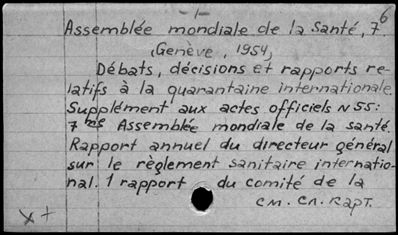 -1-
6
Assemblée mondiale de la Santé, 7.
(Genève, 1954)
Débats, décisions et rapports re-
latifs à la quarantaine internationale.
Supplément aux actes officiels N 55:
7me Assemblée mondiale de la santé.
Rapport annuel du directeur général
sur le règlement sanitaire internatio-
nal. 1 rapport du comité de la
см. сл. карт.
x +